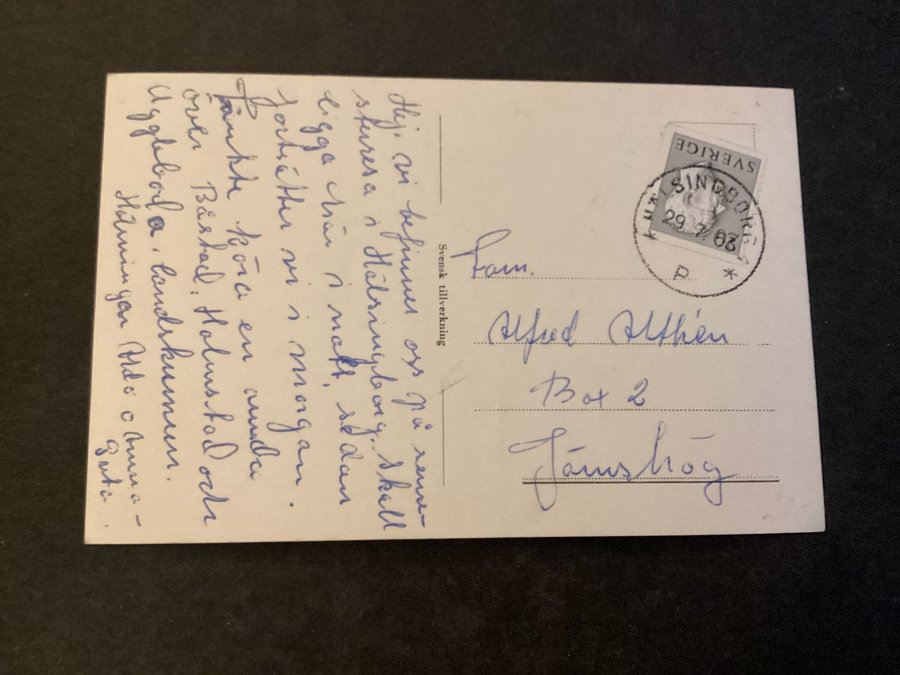 Hej, vi befinner oss på seme-
sterresa i Hälsingborg. Skall
ligga här i natt, sedan
fortsätter vi i morgon.
Tänkte köra en runda
över Båstad, Halmstad och
Landskunnen.
Hälsningar
Svensk tillverkning
SVERIGE
HÄLSINGBORG
29.7.62
P *
Fam.
Alfred Althén
Box 2
Jämshög